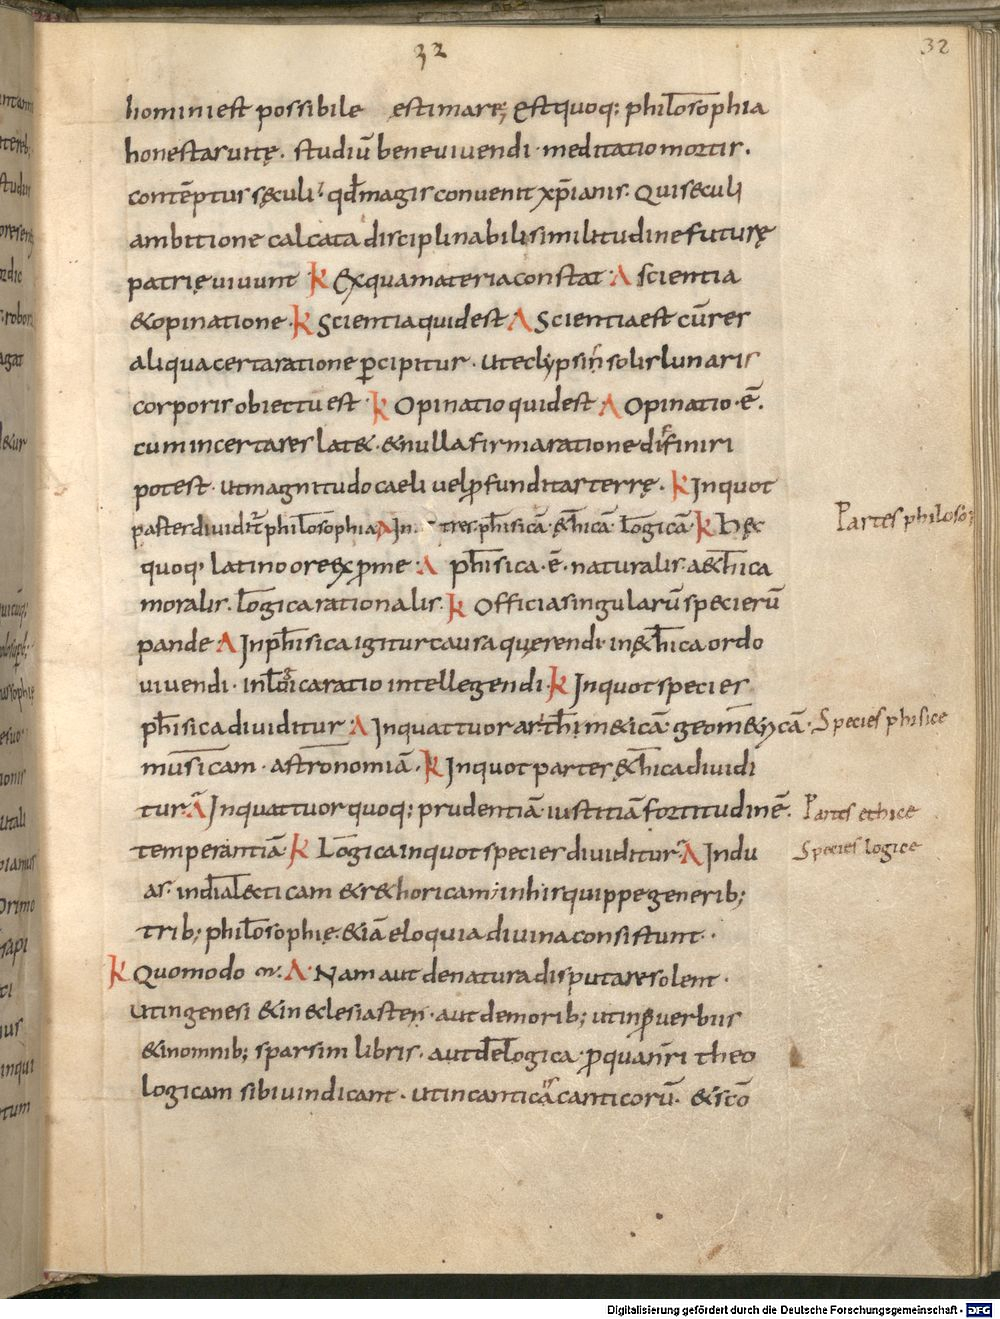 32
32
hominiest possibile estimarę; ęstquoq: philosophia
honestasuitę. studiū beneuiuendi · meditatiomortis.
contēptus sęculi · qđmagis conuenit xp̄ianis. Quiseculi
ambitione calcata disciplinabilisimilitudinefuturę
patrię uiuunt K Exquamateriaconstat · Λ scientia
&opinatione · K Scientiaquidest Λ Scientiaest cūres
aliquacertaratione p̄cipitur · uteclypsin solislunaris
corporisobiectūest · K Opinatioquidest Λ Opinatio · ē.
cumincertareslat& · &nullafirmaratione difiniri
potest · utmagnitudocaeli uelp̄funditasterrę. K Inquot
partesdiuidit̄ philosophia Λ In tres · phisicā · &hicā logicā · K Hęc
quoq; latinooreexp̄me · Λ phisica · ē · naturalis · a&hica
moralis · Logicarationalis. K Officiasingularūspecierū
pande · Λ Inphisicaigiturcausaquęrendi · in&hicaordo
uiuendi · inlogicaratio intellegendi · K Inquotspecies
phisicadiuiditur · Λ Inquattuor arithm&icā · geom&ricā ·
musicam · astronomiā · K Inquotpartes&hicadiuidi
tur · Λ Inquattuorquoq; prudentiā · iustitiāfortitudinē.
temperantiā · K Logicainquotspeciesdiuiditur · Λ Indu
as · indialecticam &r&horicam; inhisquippegenerib;
trib; philosophię · &iāeloquiadiuinaconsistunt ·
K Quomodo · Λ · Nam autdenaturadisputaresolent ·
utingenesi &in&clesiasten · autdemorib; utinp̄uerbiis
&inomnib; sparsim libris · autdelogica · p̄quanr̄i theo
logicam sibiuindicant · utincanticacanticorū · &scō
Partes philoso
Species phisice
Partes ethice
Species logice
Digitalisierung gefördert durch die Deutsche Forschungsgemeinschaft - DFG